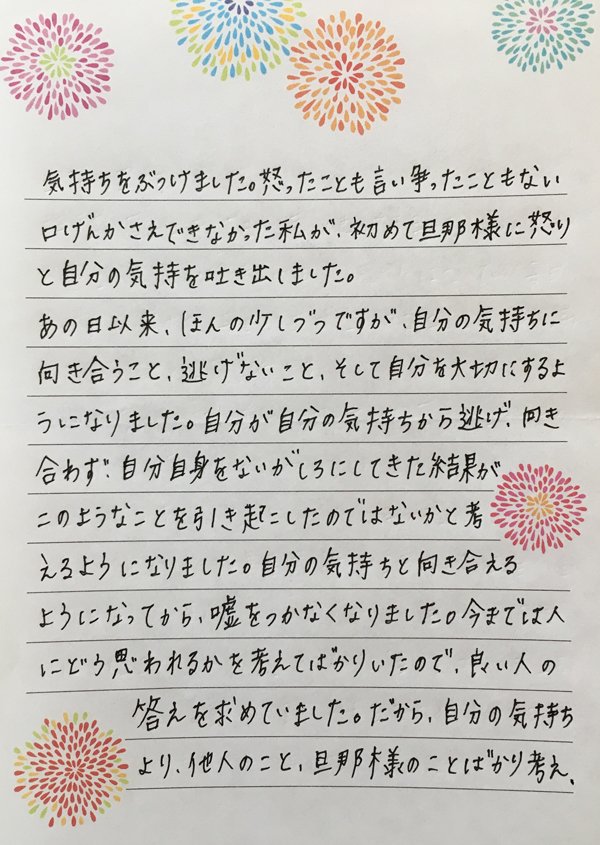 気持ちをぶつけました。怒ったことも言い争ったこともない
口げんかさえできなかった私が、初めて旦那様に怒り
と自分の気持を吐き出しました。
あの日以来、ほんの少しづつですが、自分の気持ちに
向き合うこと、逃げないこと、そして自分を大切にするよ
うになりました。自分が自分の気持ちから逃げ、向き
合わず、自分自身をないがしろにしてきた結果が
このようなことを引き起こしたのではないかと考
えるようになりました。自分の気持ちと向き合える
ようになってから、嘘をつかなくなりました。今までは人
にどう思われるかを考えてばかりいたので、良い人の
答えを求めていました。だから、自分の気持ち
より、他人のこと、旦那様のことばかり考え、